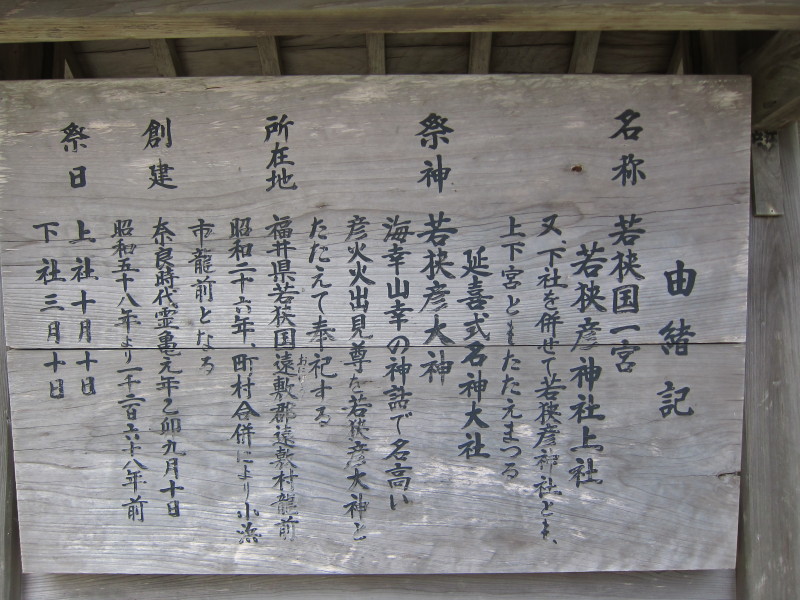 由緒記
名称 若狭国一宮
若狭彦神社上社
又、下社を併せて若狭彦神社とも、
上下宮ともたたえまつる
延喜式名神大社
祭神 若狭彦大神
海幸山幸の神話で名高い
彦火火出見尊を若狭彦大神と
たたえて奉祀する
所在地 福井県若狭国遠敷郡遠敷村龍前
おにゅう
昭和二十六年、町村合併により小浜
市龍前となる
創建 奈良時代霊亀元年乙卯九月十日
昭和五十八年より一千二百六十八年前
祭日 上社十月十日
下社三月十日